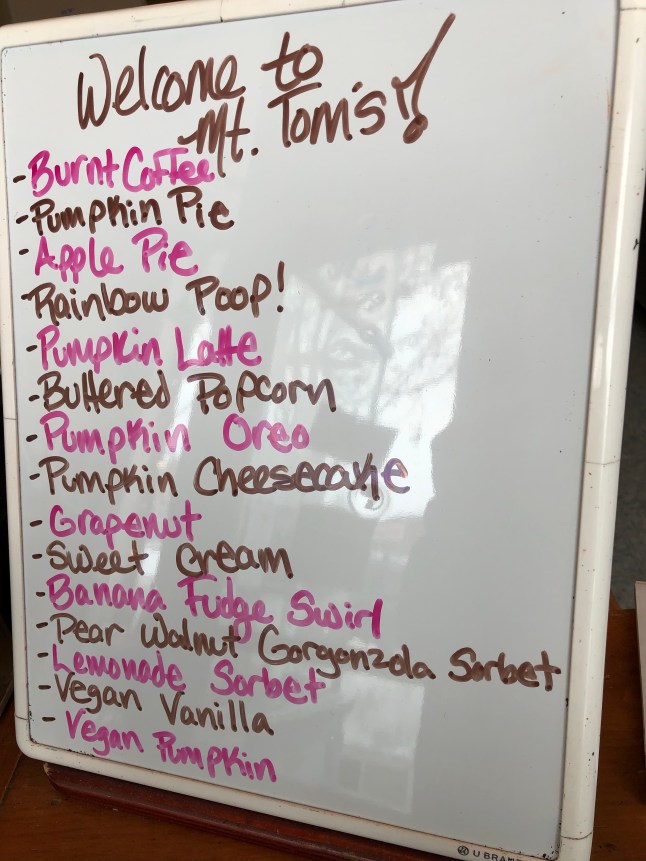 Welcome to
Mt. Tom's!
- Burnt Coffee
- Pumpkin Pie
- Apple Pie
- Rainbow Poop!
- Pumpkin Latte
- Buttered Popcorn
- Pumpkin Oreo
- Pumpkin Cheesecake
- Grapenut
- Sweet Cream
- Banana Fudge Swirl
- Pear Walnut Gorgonzola Sorbet
- Lemonade Sorbet
- Vegan Vanilla
- Vegan Pumpkin
U BRAN